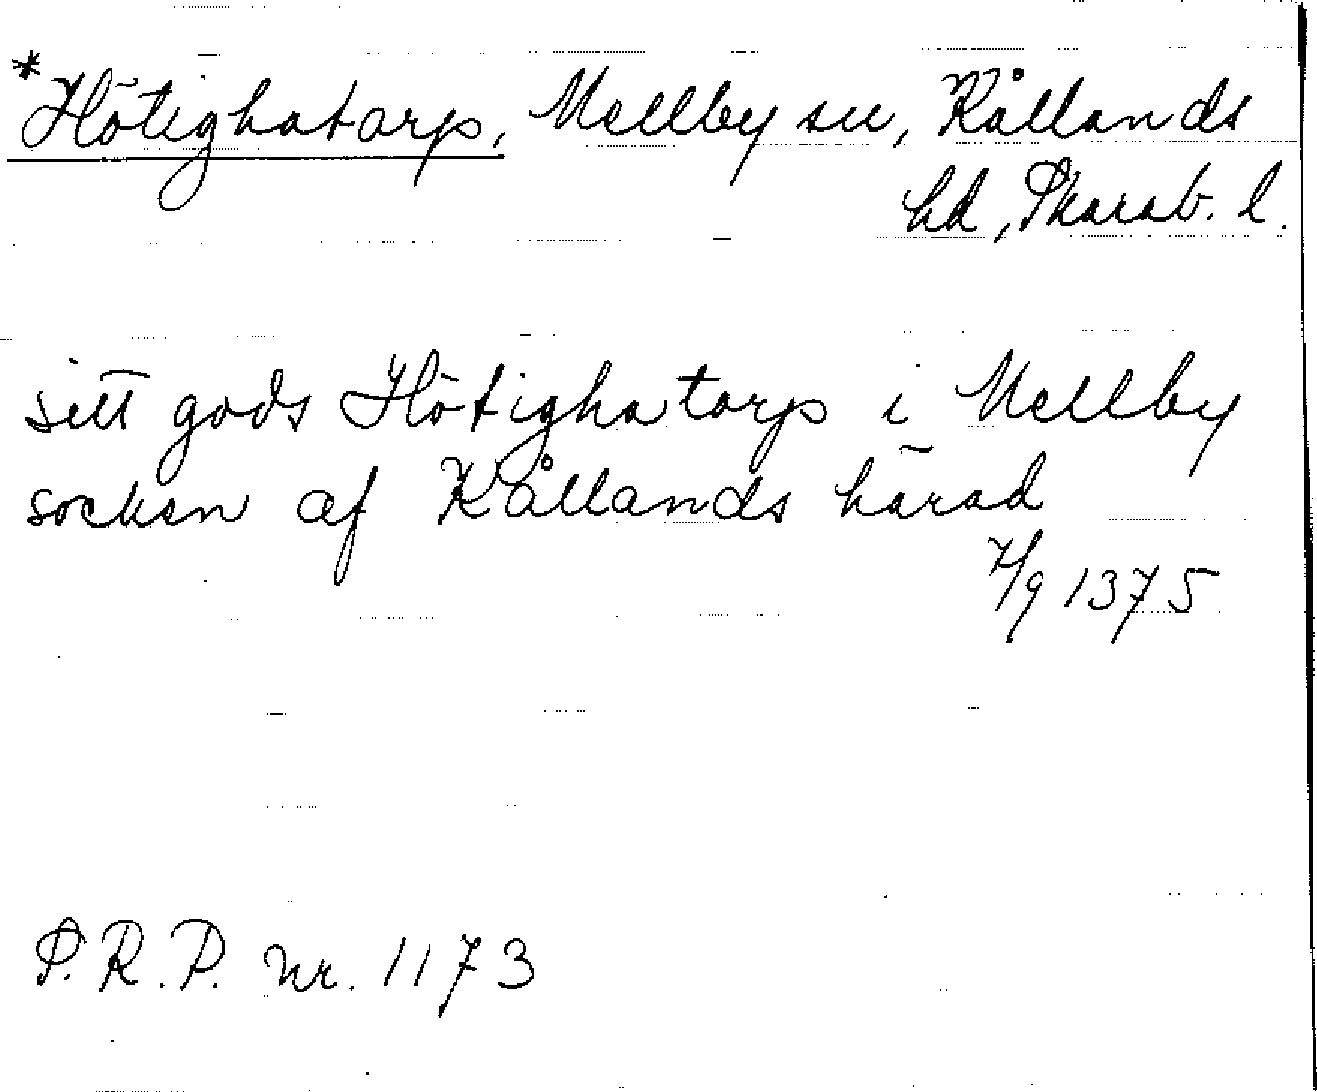 *Hötighatorp, Mellby sn, Kållands
hd, Skarab. l.
sitt gods Hötighatorp i Mellby
socken af Kållands härad
7/9 1375
S.R.P. nr. 1173